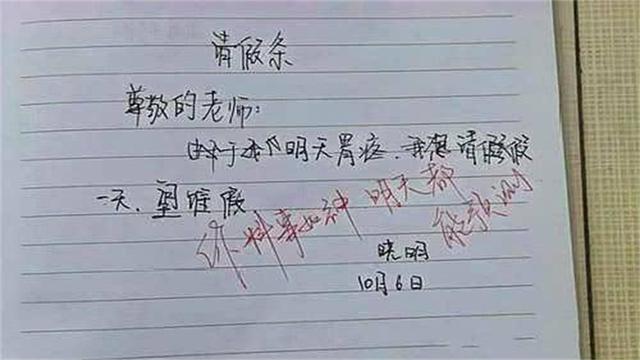 请假条
尊敬的老师:
由于我明天胃疼.我想请假
一天.望准假
你料事如神 明天都
能预测
晓明
10月6日